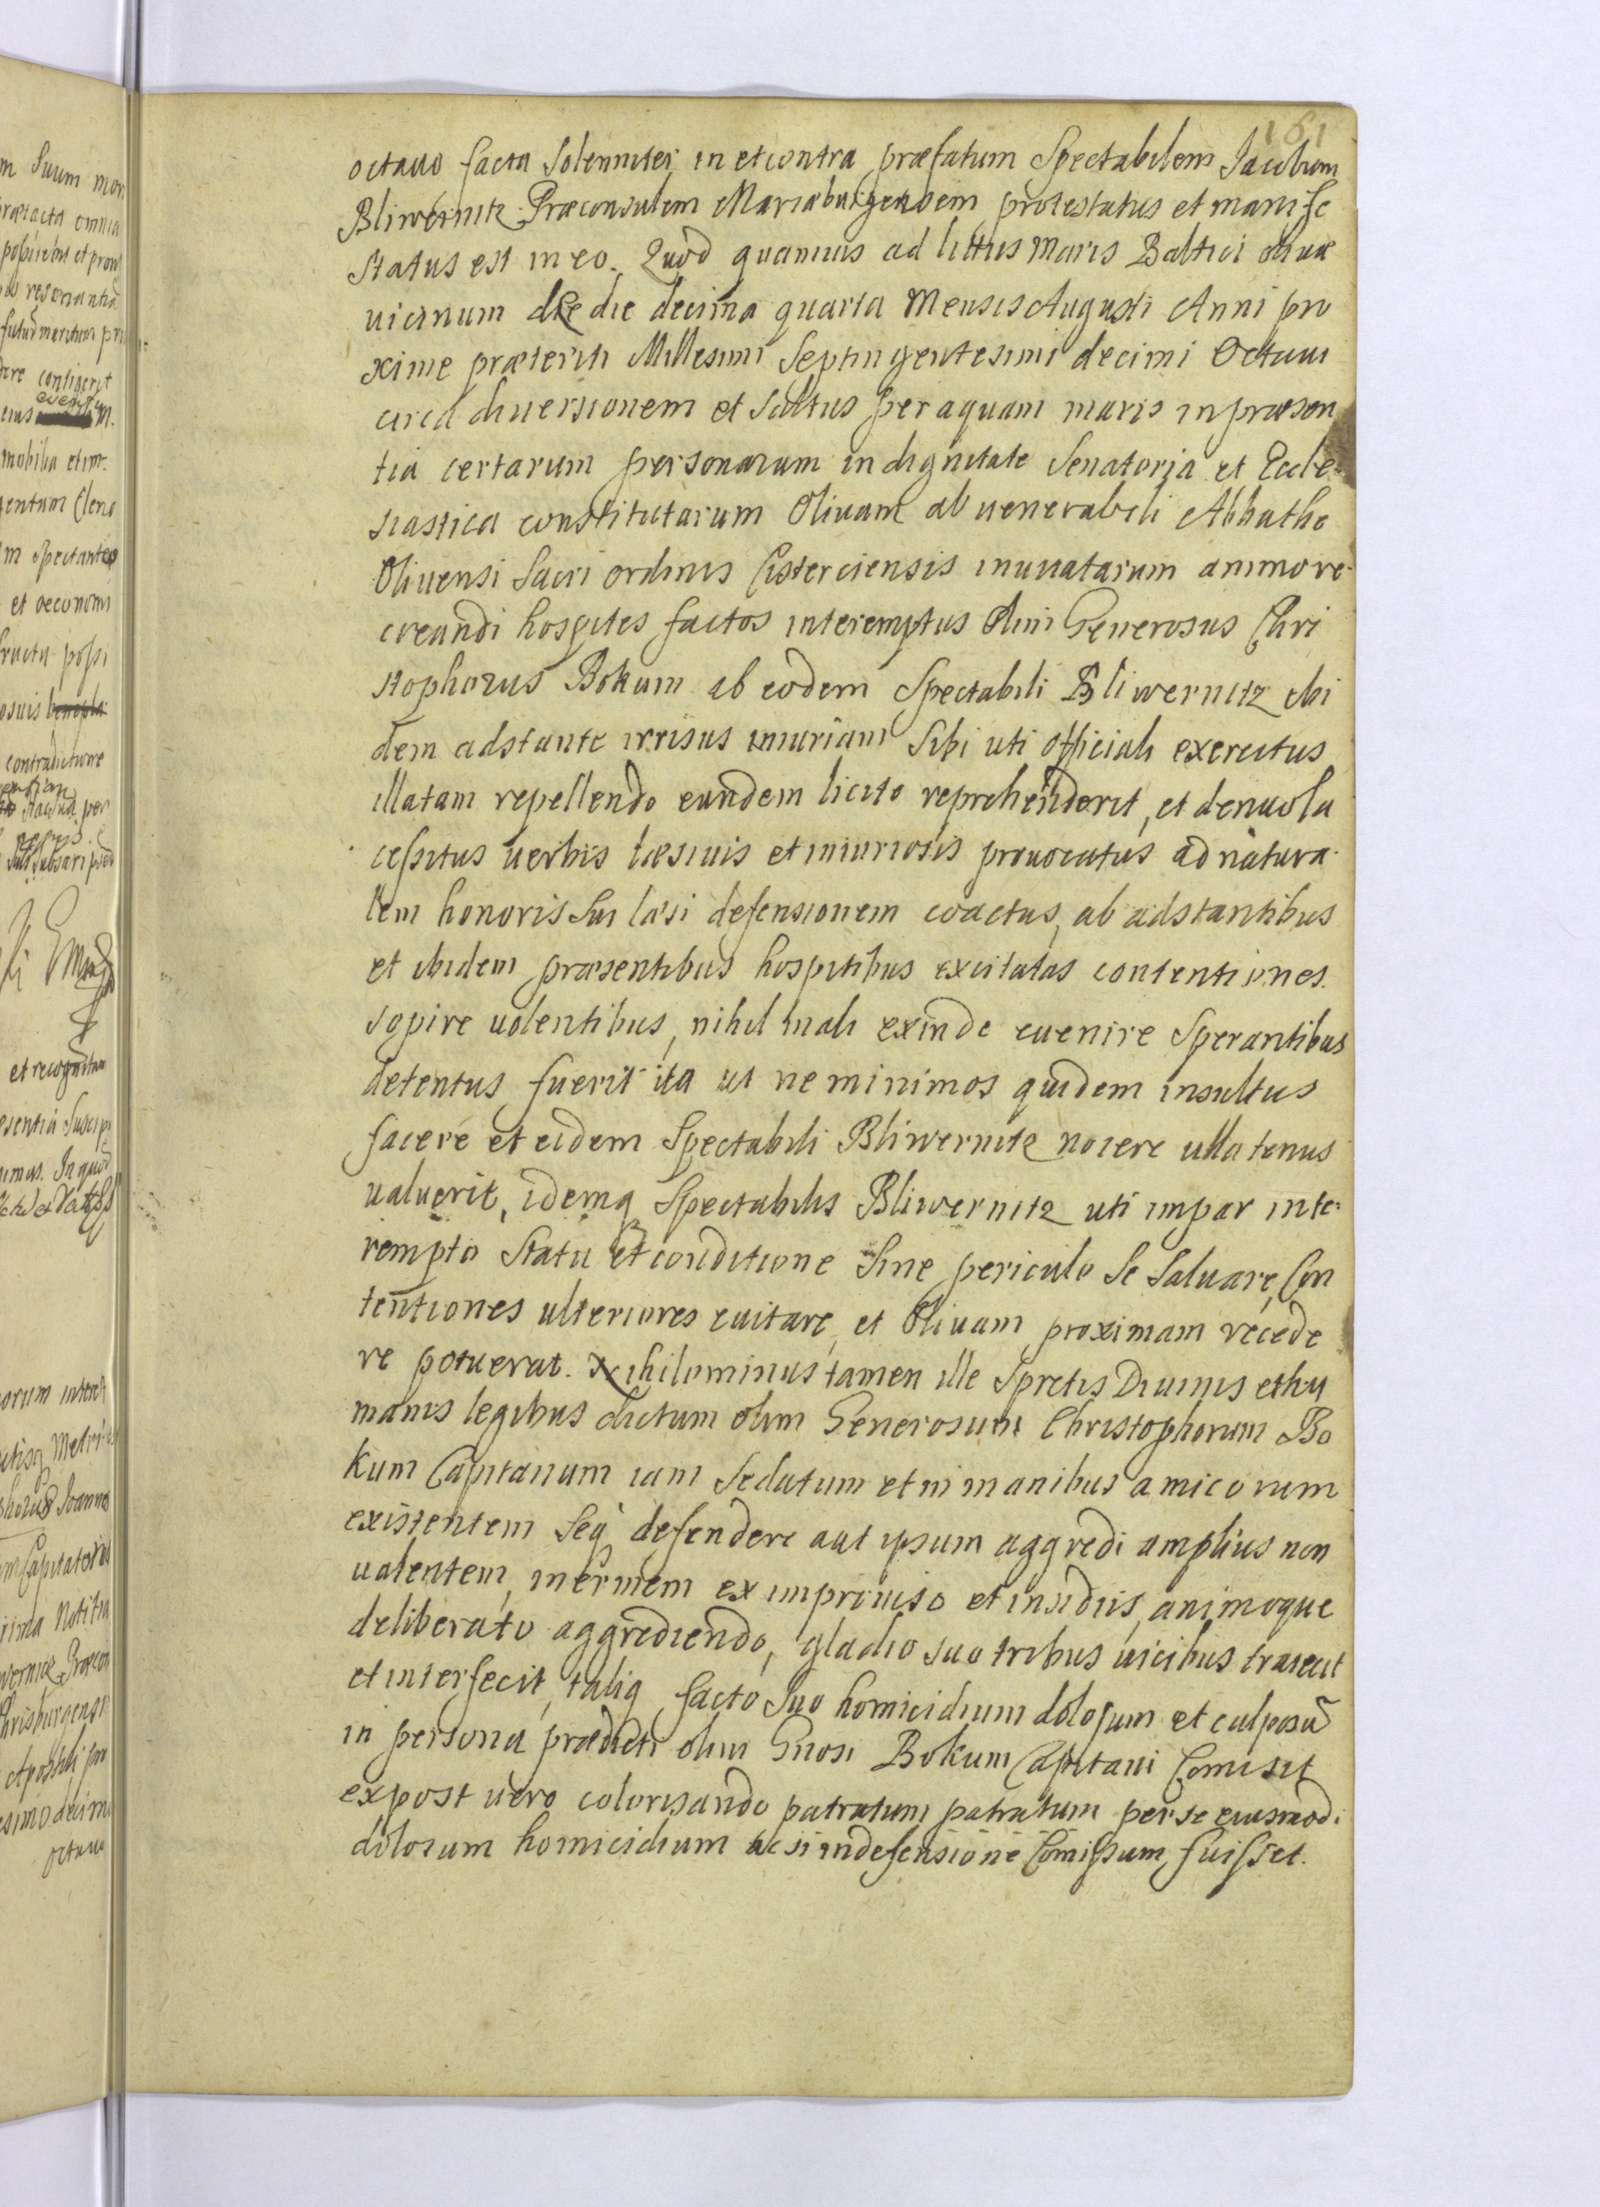 161
octauo facta Solenniter in et contra præfatum Spectabilem Jacobum
Bliwernitz Præconsulem Mariæburgensem protestatus et manife
status est in eo. Quod quamuis ad littus Maris Baltici Oliuæ
uicinum die decima quarta Mensis Augusti Anni pro
xime præteriti Millesimi Septingentesimi decimi Octaui
circa diuersionem et saltus per aquam maris in præsen
tia certarum personarum in dignitate Senatoria et Eccle-
siastica constitutarum Oliuam ab uenerabili Abbathe
Oliuensi Sacri ordinis Cisterciensis inuitatarum animo re-
creandi hospites factos interemptus olim Generosus Chri
stophorus Bokum ab eodem Spectabili Bliwernitz ibi
dem adstante irrisus iniuriam Sibi uti officiali exercitus
illatam repellendo eundem licito reprehenderit, et denuo la
cessitus uerbis læsiuis et iniuriosis prouocatus ad natura-
lem honoris Sui læsi defensionem coactus, ab adstantibus
et ibidem præsentibus hospitibus excitatas contentiones
sopire uolentibus, nihil mali exinde euenire Sperantibus
detentus fuerit ita ut ne minimos quidem insultus
facere et eidem Spectabili Bliwernitz nocere ullatenus
ualuerit, idemq Spectabilis Bliwernitz uti impar inte-
rempto Statu et conditione Sine periculo Se Saluare, Con
tentiones ulteriores euitare, et Oliuam proximam recede
re potuerat. Nihilominus tamen ille Spretis Diuinis et hu
manis legibus dictum olim Generosum Christophorum Bo
kum Capitanum iam Sedatum et in manibus amicorum
existentem Seq defendere aut ipsum aggredi amplius non
ualentem, inermem ex improuiso et insidiis, animoque
deliberato aggrediendo, gladio suo tribus uicibus traiecit
et interfecit, taliq facto Suo homicidium dolosum et culposũ
in persona prædicti olim Gnosi Bokum Capitani Comisit
expost uero colorisando patratum patratum per se eiusmodi
dolosum homicidium ac si in defensione Comissum fuisset.